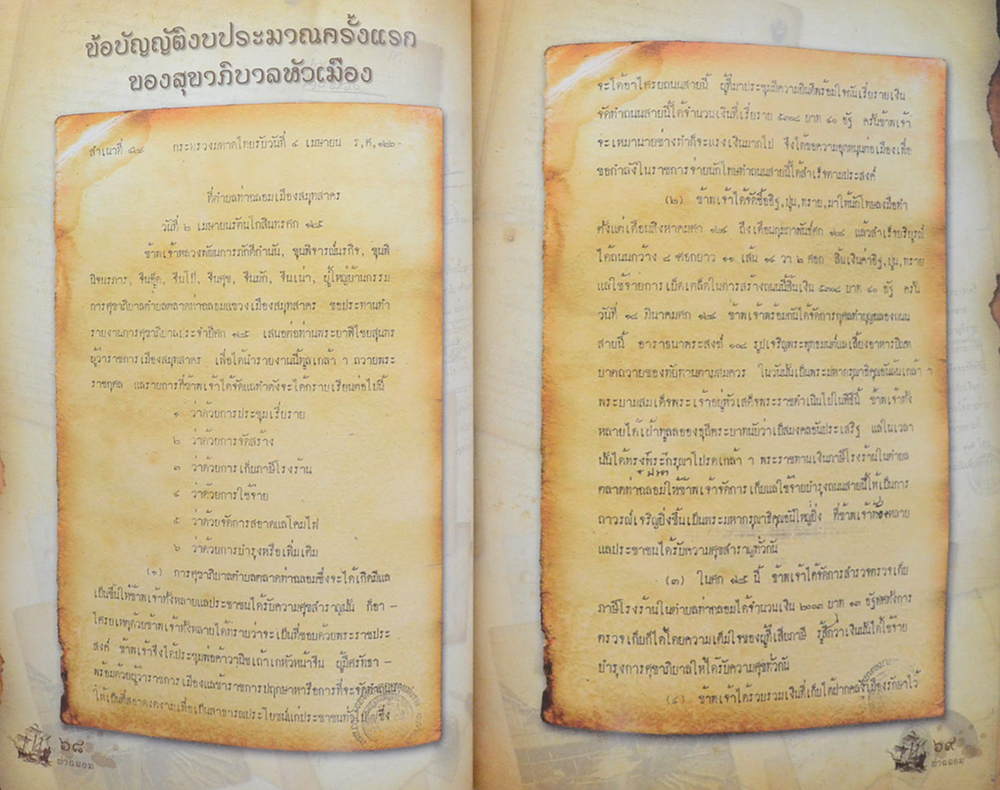 ข้อบัญญัติงบประมาณครั้งแรก
ของสุขาภิบาลหัวเมือง
สำเนาที่ ๘๔ กระทรวงมหาดไทยรับวันที่ ๔ เมษายน ร,ศ,๑๒๖
ที่ตำบลท่าฉลอมเมืองสมุทสาคร
วันที่ ๒ เมษายนรัตนโกสินทรศก ๑๒๕
ข้าพเจ้าหลวงพัฒนการภักดีกำนัน, ขุนพิจารณ์นรกิจ, ขุนพิ
นิจนรภาร, จีนอู๊ด, จีนโป๊, จีนศุข, จีนพัก, จีนเน่า, ผู้ใหญ่บ้านกรรม
การศุขาภิบาลตำบลตลาดท่าฉลอมแขวงเมืองสมุทสาคร ขอประทานทำ
รายงานการศุขาภิบาลประจำปีศก ๑๒๕ เสนอต่อท่านพระยาพิไชยสุนทร
ผู้ว่าราชการเมืองสมุทสาคร เพื่อได้นำรายงานนี้ทูลเกล้า ฯ ถวายพระ
ราชกุศล แลรายการที่ข้าพเจ้าได้จัดแลทำดังจะได้กราบเรียนต่อไปนี้
๑ ว่าด้วยการประชุมเรี่ยราย
๒ ว่าด้วยการจัดสร้าง
๓ ว่าด้วยการเก็บภาษีโรงร้าน
๔ ว่าด้วยการใช้จ่าย
๕ ว่าด้วยจัดการสอาดแลโคมไฟ
๖ ว่าด้วยการบำรุงหรือเพิ่มเติม
(๑) การศุขาภิบาลตำบลตลาดท่าฉลอมซึ่งจะได้เกิดมีแล
เป็นขึ้นให้ข้าพเจ้าทั้งหลายแลประชาชนได้รับความศุขสำราญนั้น ก็อา-
ไศรยเหตุด้วยข้าพเจ้าทั้งหลายได้ทราบว่าจะเป็นที่ชอบด้วยพระราชประ
สงค์ ข้าพเจ้าจึงได้ประชุมพ่อค้าวานิชเถ้าเกหัวหน้าจีน ผู้มีศรัทธา-
พร้อมด้วยผู้ว่าราชการเมืองแลข้าราชการปฤกษาหารือการที่จะจัดทำถนน
ให้เป็นที่สอาดงดงามเพื่อเป็นสาธารณประโยชน์แก่ประชาชนทั่วไป ซึ่ง
๖๘
ท่าฉลอม
จะได้อาไศรยถนนสายนี้ ผู้ที่มาประชุมมีความยินดีพร้อมใจกันเรี่ยรายเงิน
จัดทำถนนสายนี้ได้จำนวนเงินที่เรี่ยราย ๕๓๘๔ บาท ๔๐ อัฐ ครั้นข้าพเจ้า
จะเหมานายช่างทำก็จะแรงเงินมากไป จึงได้ขอความอุดหนุนต่อเมืองเพื่อ
ขอกำลังในราชการจ่ายนักโทษทำถนนสายนี้ได้สำเร็จตามประสงค์
(๒) ข้าพเจ้าได้จัดซื้ออิฐ,ปูน,ทราย,มาให้นักโทษลงมือทำ
ตั้งแต่เดือนสิงหาคมศก ๑๒๔ ถึงเดือนกุมภาพันธ์ศก ๑๒๔ แล้วสำเร็จบริบูรณ์
ได้ถนนกว้าง ๘ ศอกยาว ๑๑ เส้น ๑๔ วา ๒ ศอก สิ้นเงินค่าอิฐ,ปูน,ทราย
แลใช้จ่ายการเบ็ดเตล็ดในการสร้างถนนนี้สิ้นเงิน ๕๓๘๔ บาท ๔๐ อัฐ ครั้น
วันที่ ๑๘ มีนาคมศก ๑๒๔ ข้าพเจ้าพร้อมกันได้จัดการกุศลทำบุญฉลองถนน
สายนี้ อาราธนาพระสงฆ์ ๑๐๘ รูปเจริญพระพุทธมนต์แลเลี้ยงอาหารบิณฑ
บาตถวายของทัยทานตามสมควร ในวันนั้นเป็นพระมหากรุณาธิคุณอันล้นเกล้า ฯ
พระบาทสมเด็จพระเจ้าอยู่หัวเสด็จพระราชดำเนินไปในพิธีนี้ ข้าพเจ้าทั้ง
หลายได้เฝ้าทูลลอองธุลีพระบาทนับว่าเป็สมงคลอันประเสริฐ แลในเวลา
นั้นได้ทรงพระกรุณาโปรดเกล้า ฯ พระราชทานเงินภาษีโรงร้านในตำบล
ตลาดท่าฉลอมให้ข้าพเจ้าจัดการเก็บแลใช้จ่ายบำรุงถนนสายนี้ให้เป็นการ
ถาวรณ์เจริญยิ่งขึ้นเป็นพระมหากรุณาธิคุณอันใหญ่ยิ่ง ที่ข้าพเจ้าทั้งหลาย
แลประชาชนได้รับความศุขสำราญทั่วกัน
(๓) ในศก ๑๒๕ นี้ ข้าพเจ้าได้จัดการสำรวจตรวจเก็บ
ภาษีโรงร้านในตำบลท่าฉลอมได้จำนวนเงิน ๒๐๓๓ บาท ๑๓ อัฐ การ
ตรวจเก็บก็ได้โดยความเต็มใจของผู้ที่เสียภาษี รู้สึกว่าเงินนั้นได้ใช้จ่าย
บำรุงการศุขาภิบาลให้ได้รับความศุขทั่วกัน
(๔) ข้าพเจ้าได้รวบรวมเงินที่เก็บได้ฝากคลังเมืองรักษาไว้
๖๙
ท่าฉลอม